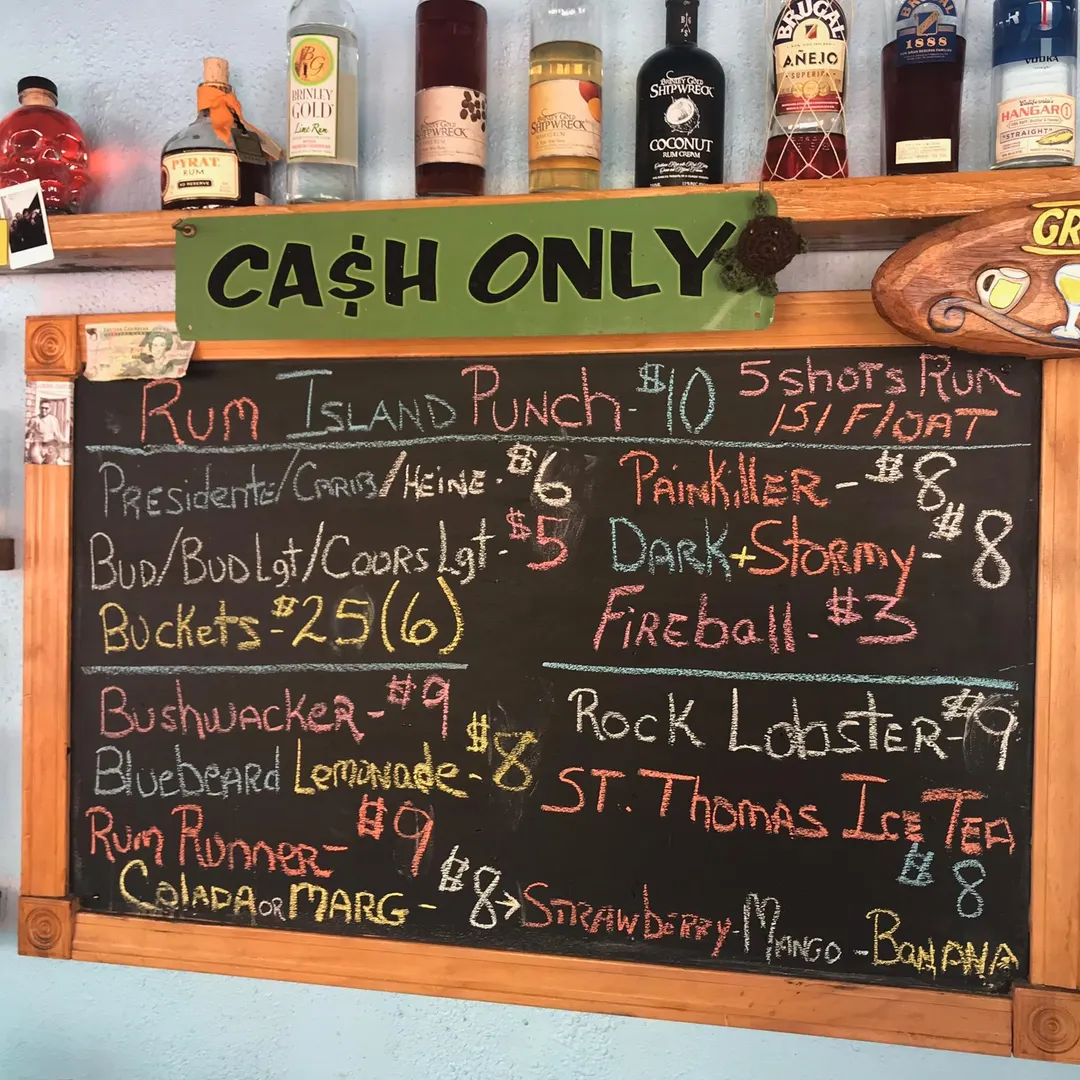 BRINLEY
GOLD
Lime Rum
PYRAT
RUM
XO RESERVE
SHIPWRECK
SHIPWRECK
BRINLEY GOLD
SHIPWRECK
COCONUT
RUM CREAM
BRUGAL
AÑEJO
SUPERIOR
BRUGAL
1888
VODKA
HANGAR 1
"STRAIGHT"
CA$H ONLY
GR
RUM ISLAND PUNCH - $10 5 shots RUM
151 FLOAT
PRESIDENTE/CARIB/HEINE - $6
BUD/BUD Lgt/COORS Lgt - $5
BUCKETS - $25 (6)
PAINKILLER - $8
DARK + STORMY - $8
FIREBALL - $3
BUSHWACKER - $9
BLUEBEARD LEMONADE - $8
RUM RUNNER - $9
ROCK LOBSTER - $9
ST. THOMAS ICE TEA
$8
COLADA OR MARG - $8 → STRAWBERRY - MANGO - BANANA